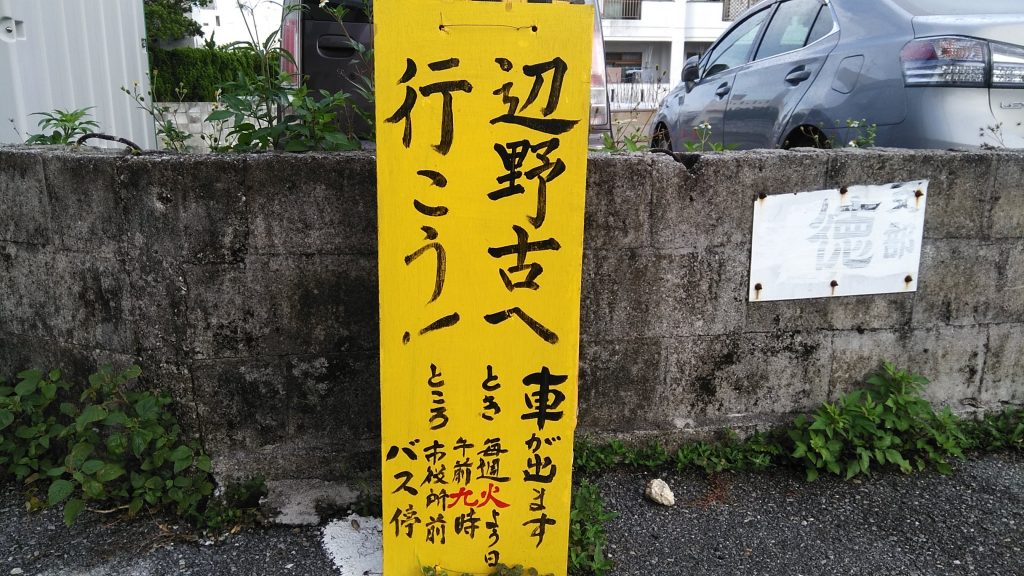 辺野古へ
行こう!
車が出ます
とき 毎週火よう日
午前九時
ところ 市役所前
バス停